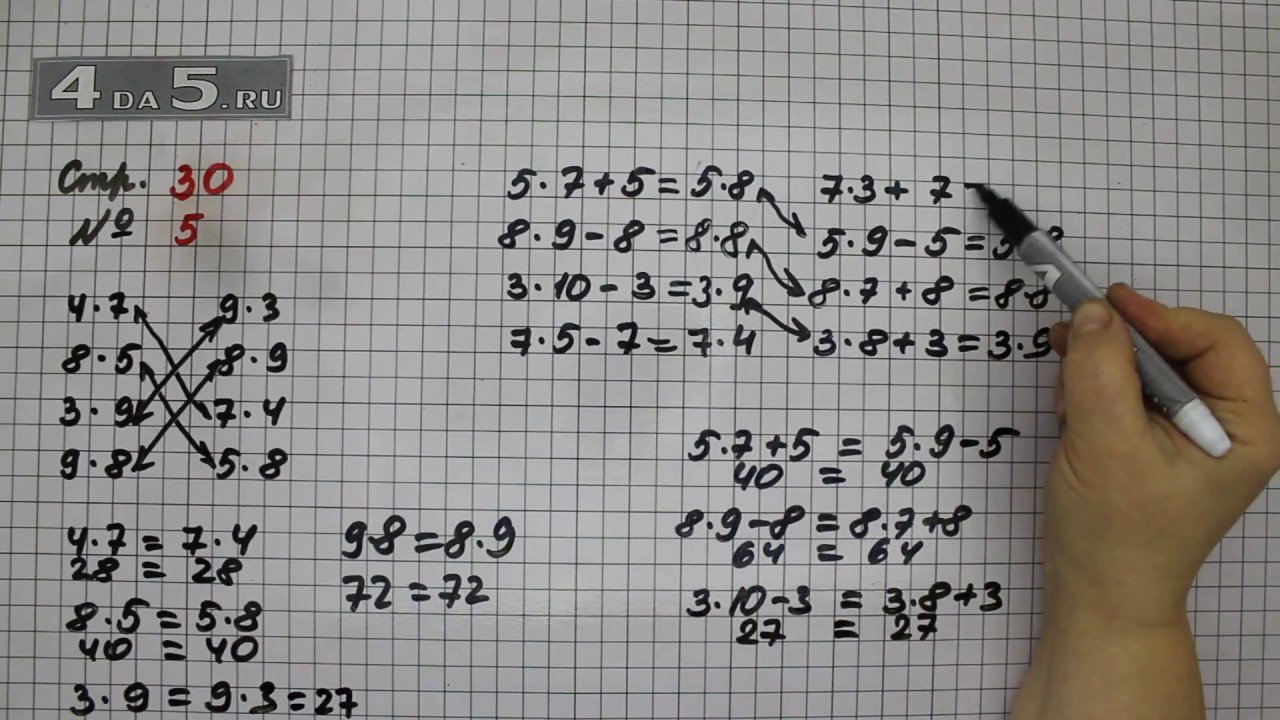 4 DA 5.RU
Стр. 30
№ 5
4·7 9·3
8·5 8·9
3·9 7·4
9·8 5·8
4·7 = 7·4
28 = 28
8·5 = 5·8
40 = 40
3·9 = 9·3 = 27
98 = 8·9
72 = 72
5·7+5 = 5·8
8·9-8 = 8·8
3·10-3 = 3·9
7·5-7 = 7·4
7·3+ 7 -
5·9-5 =
8·7+8 = 8·8
3·8+3 = 3·9
5·7+5 = 5·9-5
40 = 40
8·9-8 = 8·7+8
64 = 64
3·10-3 = 3·8+3
27 = 27